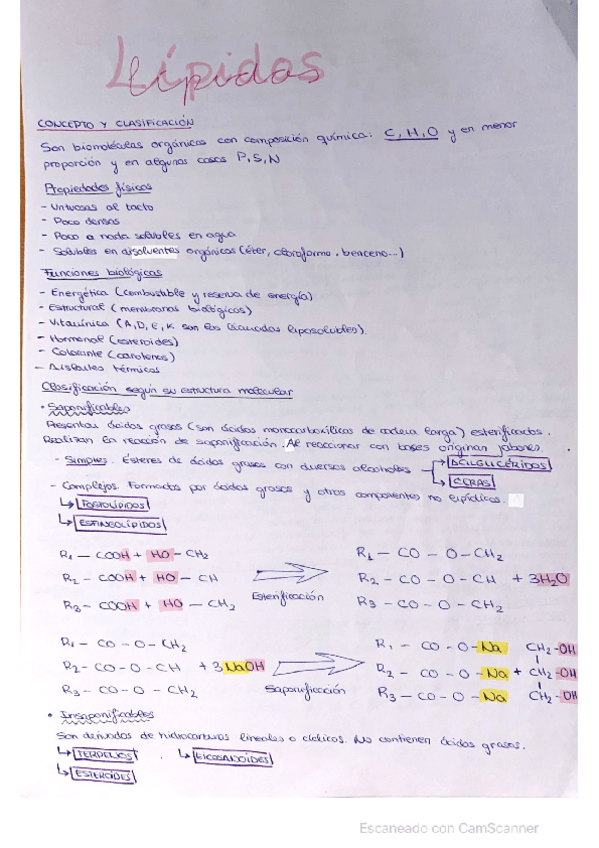 Lípidos
CONCEPTO Y CLASIFICACIÓN
Son biomoléculas orgánicas con composición química: C, H, O y en menor
proporción y en algunos casos P, S, N
Propiedades físicas
- Untuosas al tacto
- Poco densas
- Poco a nada solubles en agua
- Solubles en disolventes orgánicos (éter, cloroformo, benceno...)
Funciones biológicas
- Energética (combustible y reserva de energía)
- Estructural (membranas biológicas)
- Vitamínica (A, D, E, K son las llamadas liposolubles).
- Hormonal (esteroides)
- Colorante (carotenos)
- Aislantes térmicos
Clasificación según su estructura molecular
• Saponificables
Presentan ácidos grasos (son ácidos monocarboxílicos de cadena larga) esterificados.
Realizan la reacción de saponificación. Al reaccionar con bases originan jabones.
- Simples. Ésteres de ácidos grasos con diversos alcoholes → ACILGLICÉRIDOS
→ CERAS
- Complejos. Formados por ácidos grasos y otros componentes no lipídicos.
↳ FOSFOLÍPIDOS
↳ ESFINGOLÍPIDOS
R₁ — COOH + HO — CH₂ R₁ — CO — O — CH₂
R₂ — COOH + HO — CH Esterificación R₂ — CO — O — CH + 3H₂O
R₃ — COOH + HO — CH₂ R₃ — CO — O — CH₂
R₁ — CO — O — CH₂ R₁ — CO — O — Na CH₂-OH
R₂ — CO — O — CH + 3NaOH Saponificación R₂ — CO — O — Na + CH₂-OH
R₃ — CO — O — CH₂ R₃ — CO — O — Na CH₂-OH
• Insaponificables
Son derivados de hidrocarburos lineales o cíclicos. No contienen ácidos grasos.
↳ TERPENOS ↳ EICOSANOIDES
↳ ESTEROIDES
Escaneado con CamScanner